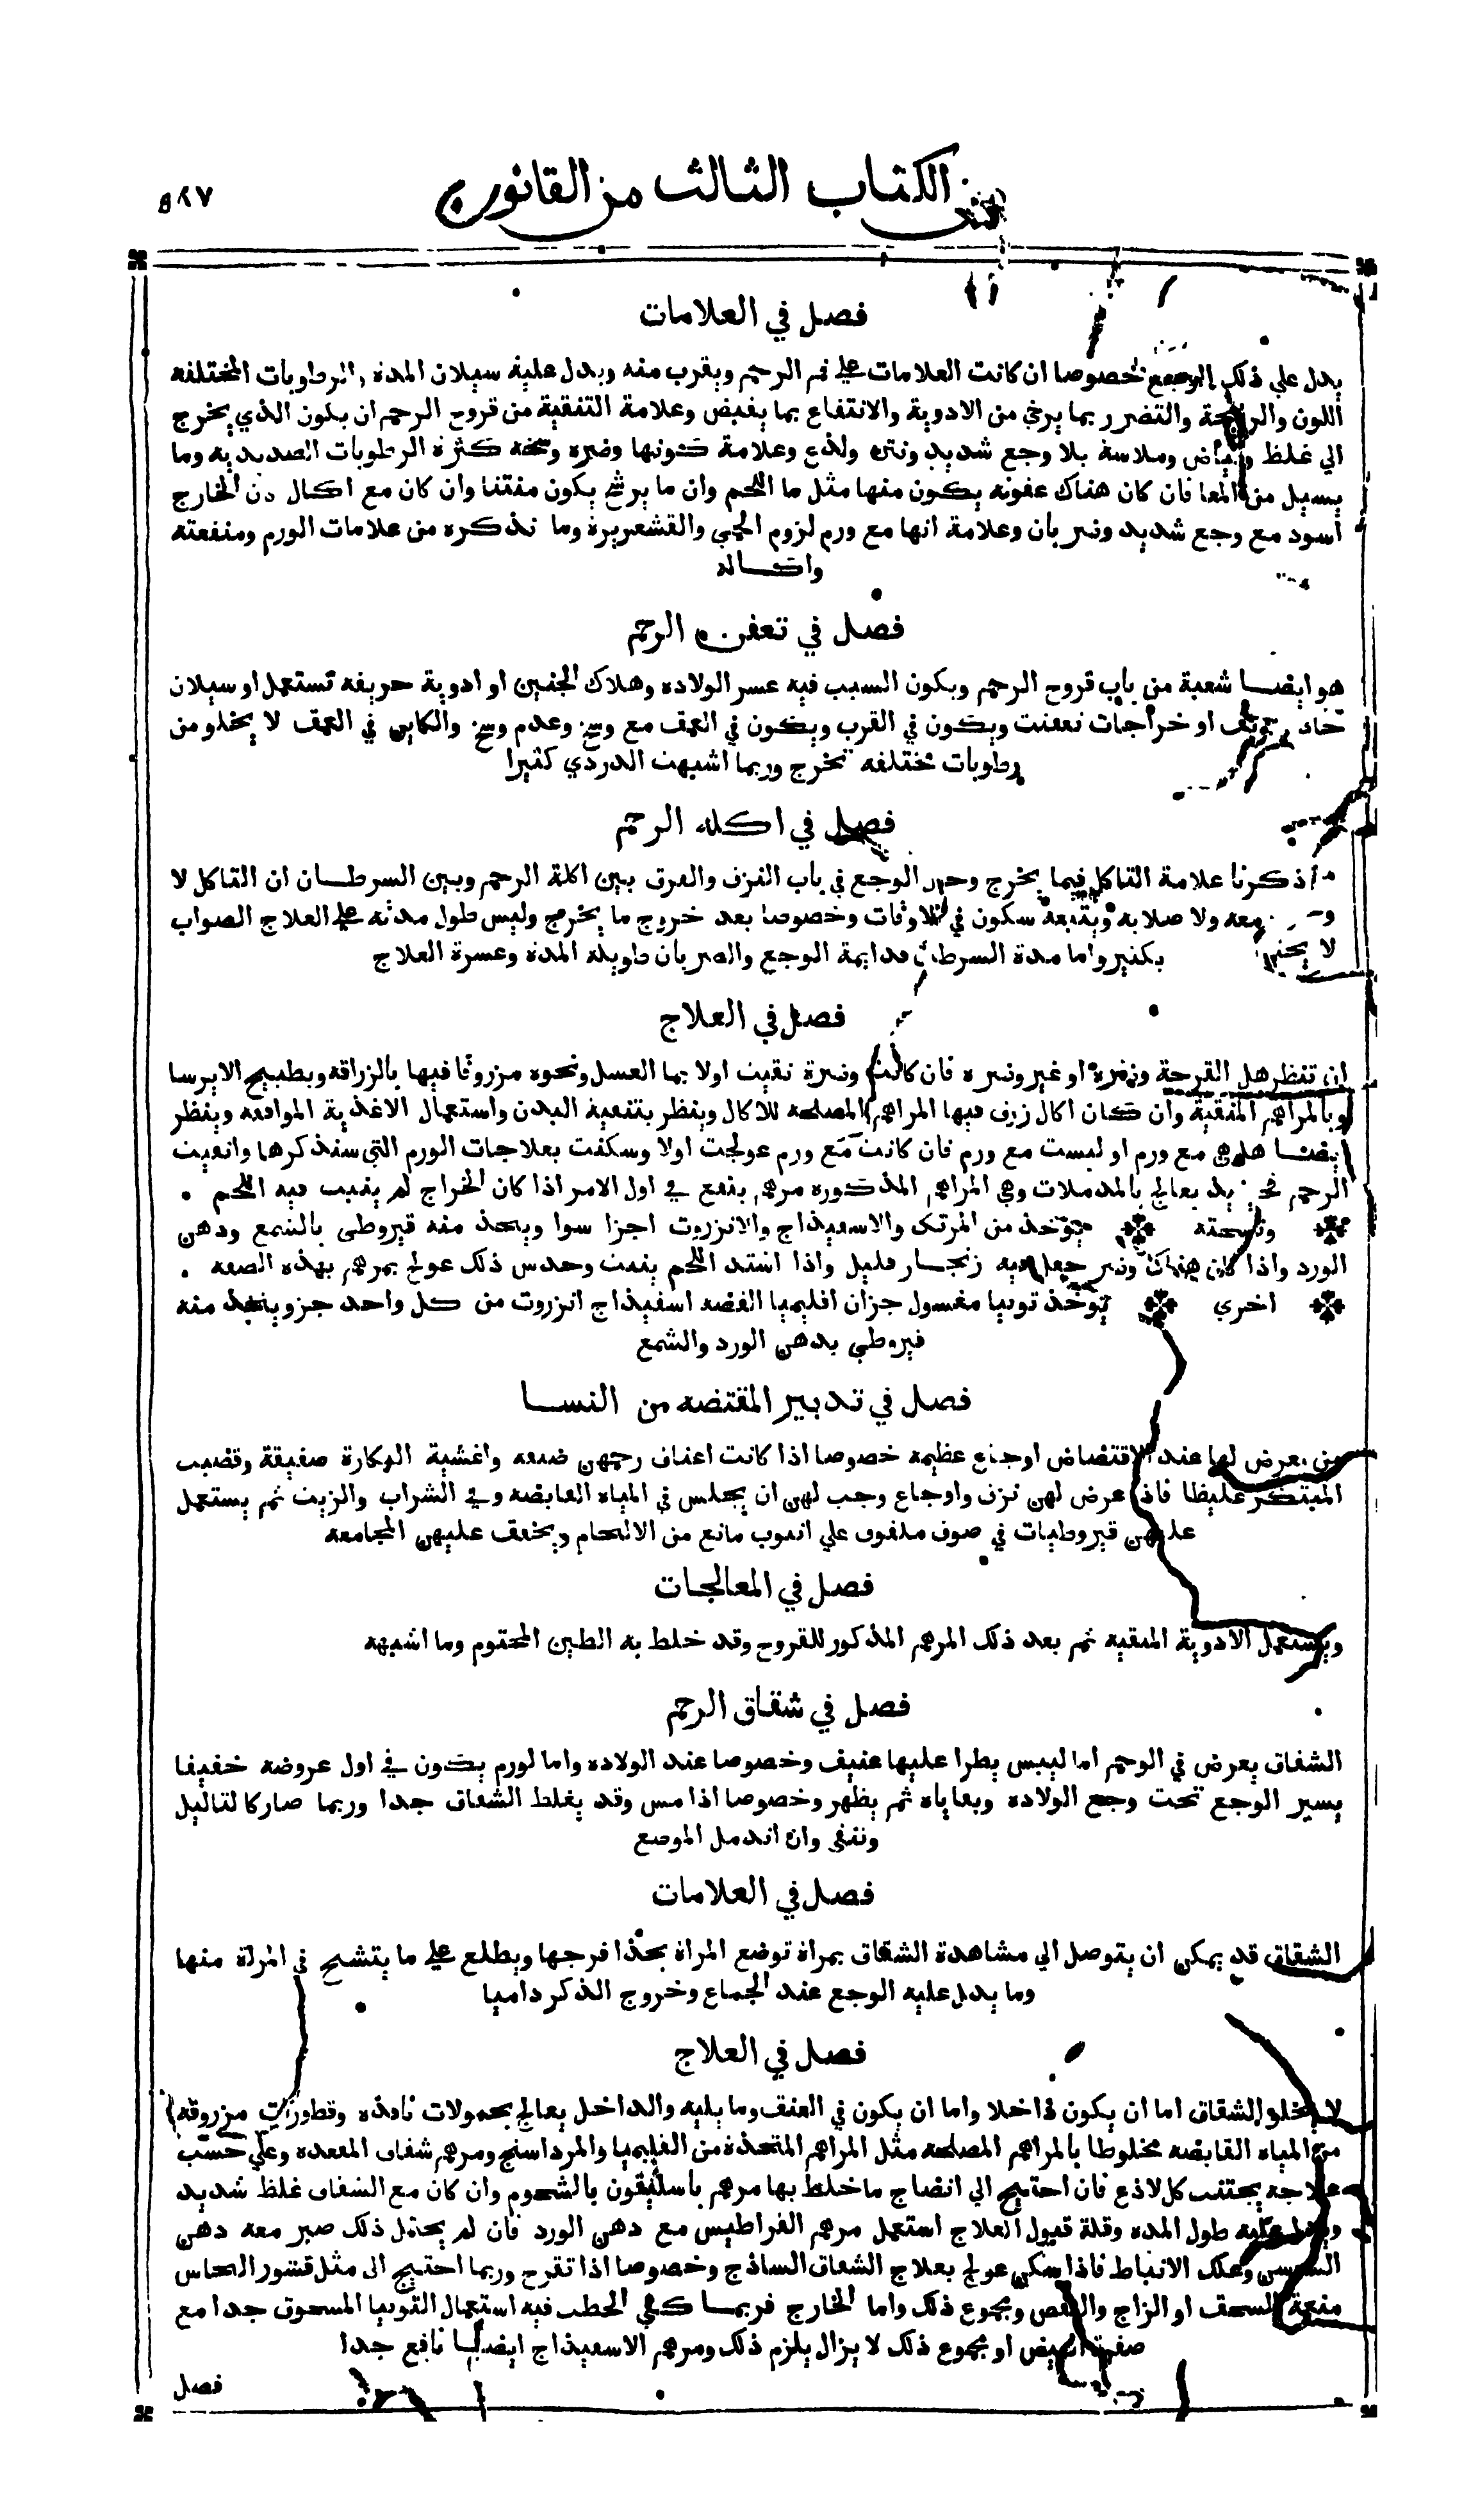 الكتاب الثالث من القانون
٥٨٧
فصل في العلامات
يدل علي ذلك الوجع خصوصا ان كانت العلامات علي فم الرحم ويقرب منه ويدل عليه سيلان المدة والرطوبات المختلفه
اللون والرايحة والتضرر بما يرخي من الادوية والانتفاع بما يقبض وعلامة التنقية من قروح الرحم ان يكون الذي يخرج
الي غلظ وبياض وملاسة بلا وجع شديد ونتن ولذع وعلامة كونها وضره وسخه كثره الرطوبات الصديديه وما
يسيل من المعا فان كان هناك عفونه يكون منها مثل ما اللحم وان ما يرشح يكون منتنا وان كان مع اكال دن الخارج
اسود مع وجع شديد وضربان وعلامة انها مع ورم لزوم الحمي والقشعريرة وما نذكره من علامات الورم ومنفعته
واكاله
فصل في تعفن الرحم
هو ايضا شعبة من باب قروح الرحم ويكون السبب فيه عسر الولاده وهلاك الجنين او ادوية حريفه تستعمل او سيلان
حاد او خراجات تعفنت ويكون في القرب ويكون في العمق مع وسخ وعدم وسخ والكاين في العمق لا يخلو من
رطوبات مختلفه تخرج وربما اشبهت الدردي كثيرا
فصل في اكله الرحم
ذكرنا علامة التاكل فيما يخرج وحد الوجع في باب النزف والفرق بين اكلة الرحم وبين السرطان ان التاكل لا
معه ولا صلابه ويتبعه سكون في الاوقات وخصوصا بعد خروج ما يخرج وليس طول مدته علي العلاج الصواب
لا بكثير واما مدة السرطان فدايمة الوجع والضربان طويله المدة وعسرة العلاج
فصل في العلاج
ان تنظر هل القرحة وضرة او غير وضره فان كانت وضرة نقيت اولا بما العسل ونحوه مزروقا فيها بالزراقه وبطبيخ الايرسا
وبالمراهم المنقية وان كان اكال زرق فيها المراهم المصلحه للاكال وينظر بتنقية البدن واستعمال الاغذية الموافقه وينظر
ايضا هل هي مع ورم او ليست مع ورم فان كانت مع ورم عولجت اولا وسكنت بعلاجات الورم التي سنذكرها وانقيت
الرحم يعالج بالمدملات وهي المراهم المذكوره مرهم ينفع في اول الامر اذا كان الخراج لم ينبت فيه اللحم
ونسحته يوخذ من المرتك والاسفيذاج والانزروت اجزا سوا ويتخذ منه قيروطي بالشمع ودهن
الورد واذا كان هناك وضر جعل فيه زنجار قليل واذا اشتد اللحم ينبت وحدس ذلك عولج بمرهم بهذه الصفه
اخري يوخذ توتيا مغسول جزان اقليميا الفضه اسفيذاج انزروت من كل واحد جزو يتخذ منه
قيروطي بدهن الورد والشمع
فصل في تدبير المقتضه من النسا
من يعرض لها عند الاقتضاض اوجاع عظيمه خصوصا اذا كانت اعناق رحمهن ضيقه واغشية البكارة صفيقة وقضيب
المبتكر غليظا فاذا عرض لهن نزف واوجاع وجب لهن ان يجلس في المياه القابضه وفي الشراب والزيت ثم يستعمل
عليهن قيروطيات في صوف ملفوف علي انبوب مانع من الالتحام ويخفف عليهن المجامعه
فصل في المعالجات
ويستعمل الادوية المنقيه ثم بعد ذلك المرهم المذكور للقروح وقد خلط به الطين المختوم وما اشبهه
فصل في شقاق الرحم
الشقاق يعرض في الوحم اما ليبس يطرا عليها عنيف وخصوصا عند الولاده واما لورم يكون في اول عروضه خفيفا
يسير الوجع تحت وجع الولاده وبعاياه ثم يظهر وخصوصا اذا مس وقد يغلظ الشقاق جدا وربما صار كالثاليل
وننقي وان اندمل الموضع
فصل في العلامات
الشقاق قد يمكن ان يتوصل الي مشاهدة الشقاق بمراة توضع المراة بحذا فرجها ويطلع علي ما يتشبح في المراة منها
وما يدل عليه الوجع عند الجماع وخروج الذكر داميا
فصل في العلاج
لا يخلو الشقاق اما ان يكون داخلا واما ان يكون في العنق وما يليه والداخل يعالج بحمولات نافذه وقطورات مزروقه
من المياه القابضه مخلوطا بالمراهم المصلحه مثل المراهم المتخذة من القليميا والمرداسنج ومرهم شقاق المقعده وعلي حسب
علاجه يجتنب كل لاذع فان احتيج الي انضاج ما خلط بها مرهم باسليقون بالشحوم وان كان مع الشقاق غلظ شديد
ويدل عليه طول المده وقلة قبول العلاج استعمل مرهم القراطيس مع دهن الورد فان لم يحتمل ذلك صبر معه دهن
السوسن وعلك الانباط فاذا سكن عولج بعلاج الشقاق الساذج وخصوصا اذا تقرح وربما احتيج الي مثل قشور النحاس
منعمة السحق او الزاج والعفص ومجموع ذلك واما الخارج فربما كفي الخطب فيه استعمال التوتيا المسحوق جدا مع
صفرة البيض او مجموع ذلك لا يزال يلزم ذلك ومرهم الاسفيذاج ايضا نافع جدا
فصل